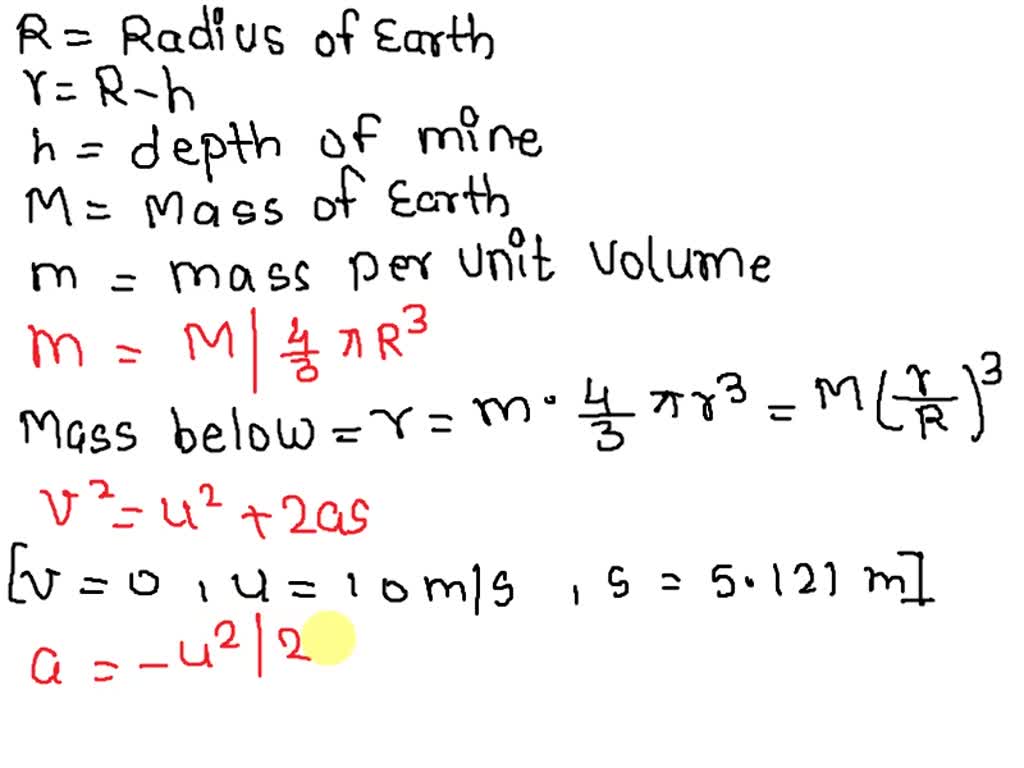 R = Radius of Earth
r = R - h
h = depth of mine
M = Mass of Earth
m = mass per unit volume
m = M | 4/3 π R³
Mass below = r = m · 4/3 π r³ = M (r/R)³
v² = u² + 2as
[v = 0 , u = 10 m/s , s = 5.121 m]
a = - u² | 2